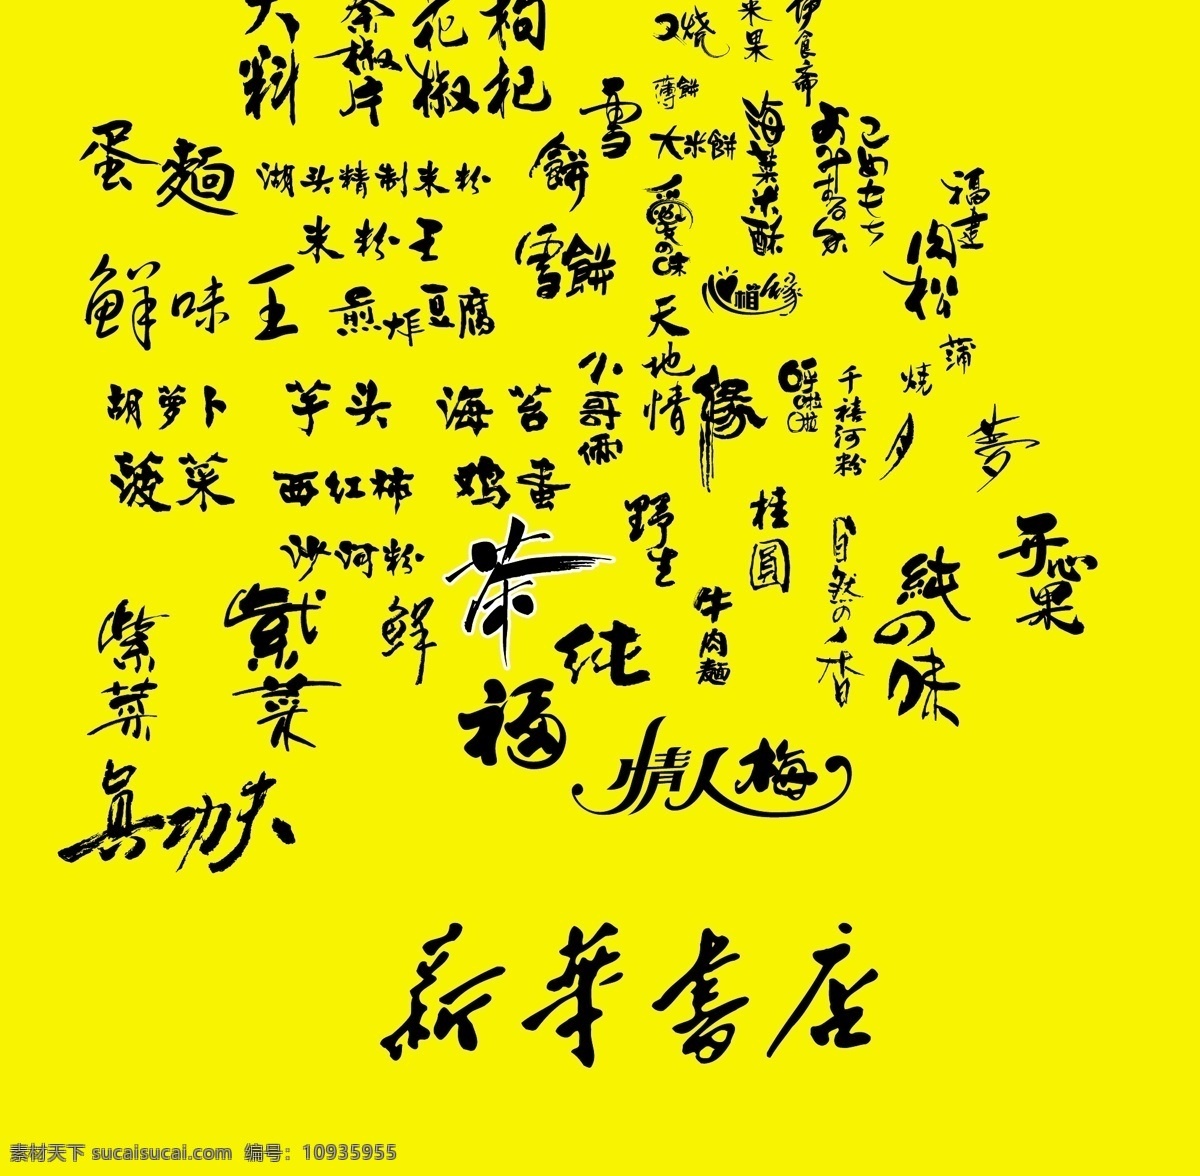 大料
茶椒片
花椒
枸杞
叉烧
米果
伊食斋
薄餅
雪
大米餅
海菜米酥
おみやる
こめもち
蛋麵
湖头精制米粉
餅
愛の味
福建
肉松
米粉王
雪餅
相缘
鲜味王
煎炸豆腐
天地情
小哥俩
缘
呼啦啦
千禧河粉
烧
蒲
月
夢
胡萝卜
芋头
海苔
菠菜
西红柿
鸡蛋
野生
桂圓
自然の香
純の味
开心果
沙河粉
茶
紫菜
紫菜
鲜
纯
牛肉麵
福
情人梅
真功夫
新華書店
素材天下 sucaisucai.com 编号：10935955